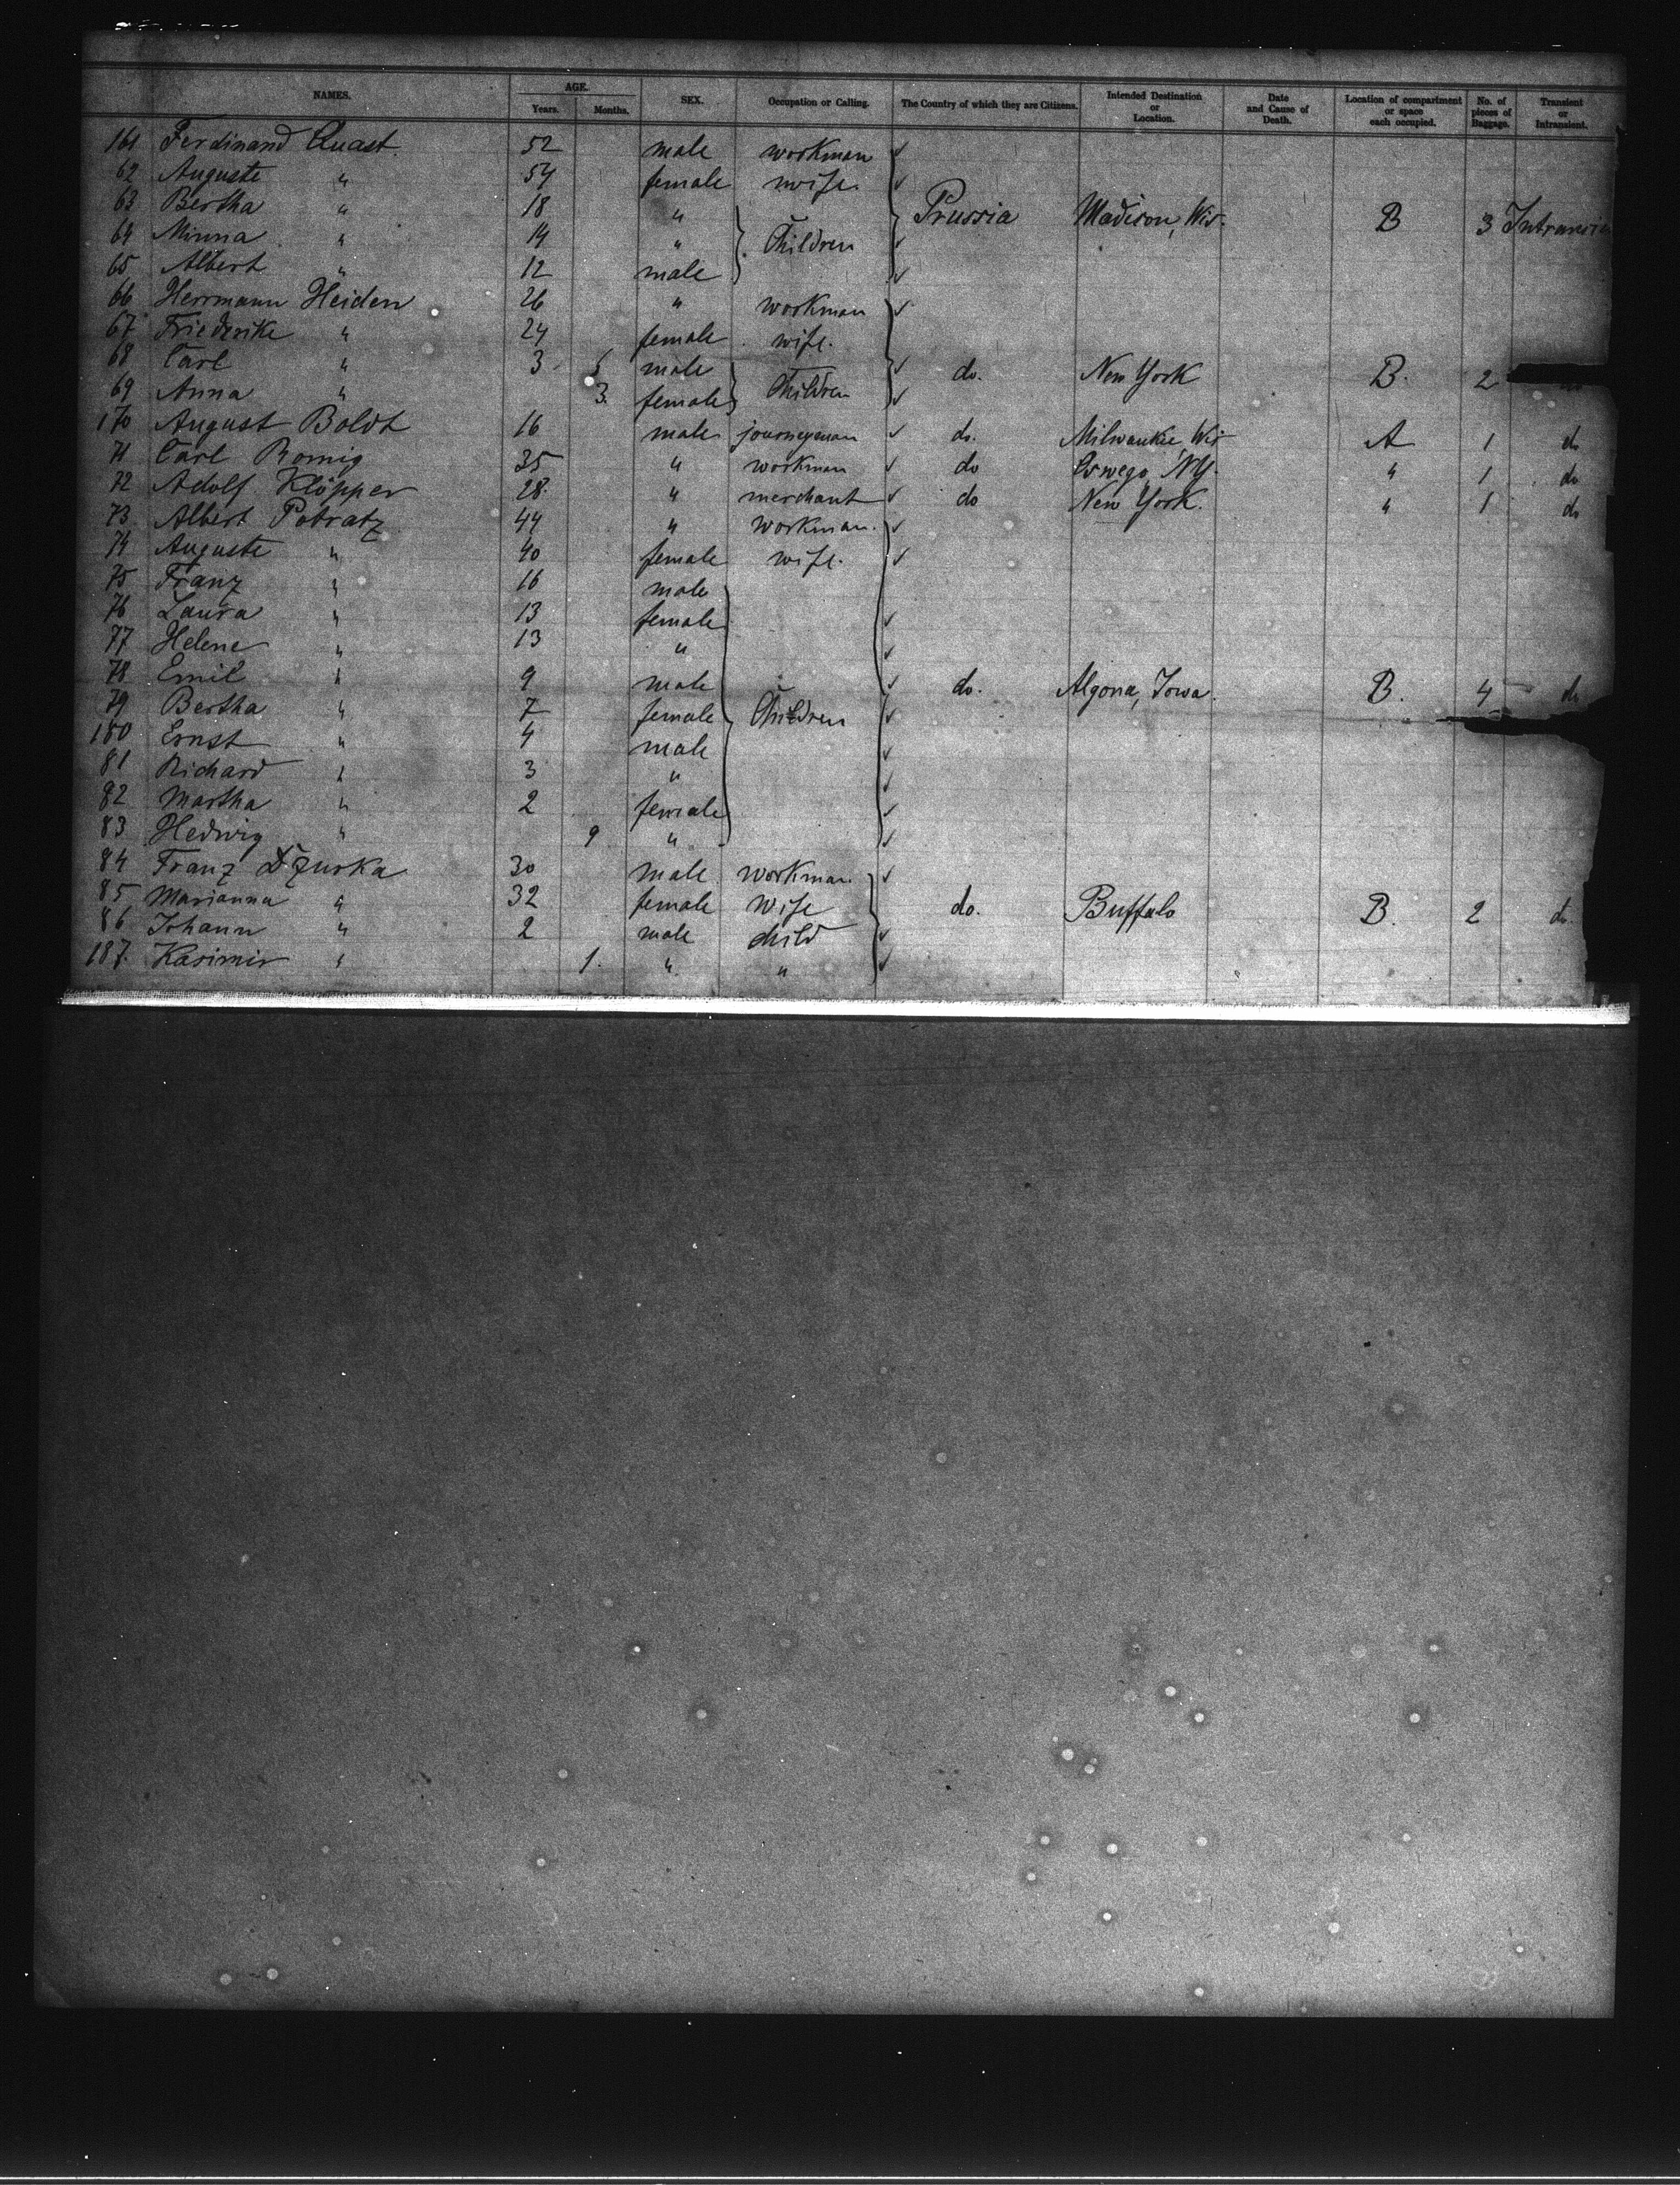 NAMES. AGE. Years. Months. SEX. Occupation or Calling. The Country of which they are Citizens. Intended Destination or Location. Date and Cause of Death. Location of compartment or space each occupied. No. of pieces of Baggage. Transient or Intransient.
161 Ferdinand Quast 52 male workman
62 Auguste " 54 female wife
63 Bertha " 18 " Prussia Madison, Wis. B 3
64 Minna " 14 " Children
65 Albert " 12 male
66 Herrmann Heiden 26 " workman
67 Friederike " 24 female wife.
68 Carl " 3 male do. New York B. 2
69 Anna " 3. female Children
170 August Boldt 16 male journeyman do. Milwaukie, Wis A 1 do
71 Carl Romig 35 " workman do Oswego, NY. " 1 do
72 Adolf Klöpper 28. " merchant do New York. " 1 do
73 Albert Potratz 44 " workman.
74 Auguste " 40 female wife.
75 Franz " 16 male
76 Laura " 13 female
77 Helene " 13 "
78 Emil " 9 male do. Algona, Iowa. B. 4 do
79 Bertha " 7 female Children
180 Ernst " 4 male
81 Richard " 3 "
82 Martha " 2 female
83 Hedwig " 9 "
84 Franz 30 male workman
85 Marianna " 32 female wife do. Buffalo B. 2 do.
86 Johann " 2 male child
187. Kasimir " 1. " "